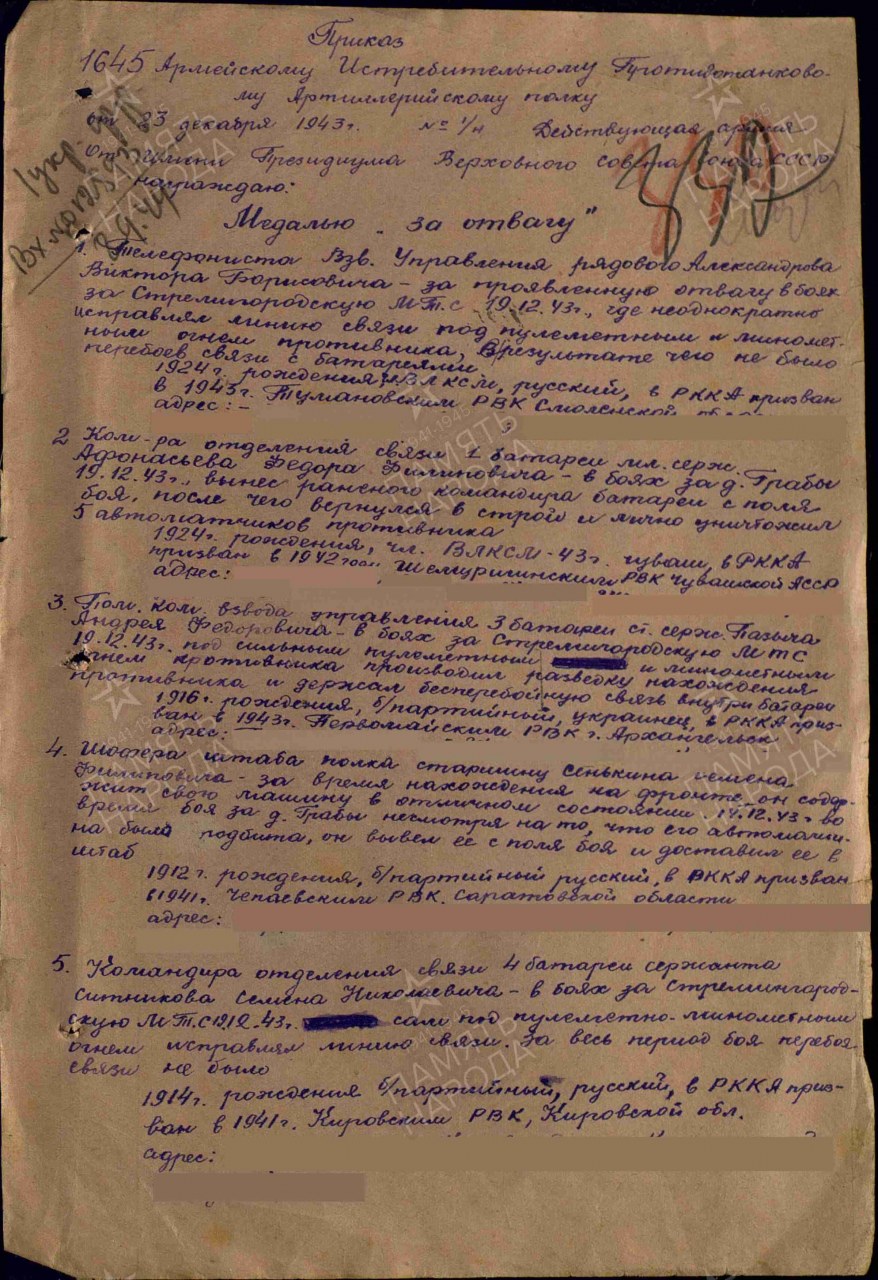 Приказ
1645 Армейскому Истребительному Противотанково-
му Артиллерийскому полку
от 23 декабря 1943г. № 1/н Действующая армия
От имени Президиума Верховного Совета Союза СССР
награждаю:
Медалью „за отвагу"
1. Телефониста Взв. Управления рядового Александрова
Виктора Борисовича - за проявленную отвагу в боях
за Стремигородскую М.Т.С 19.12.43г., где неоднократно
исправлял линию связи под пулеметным и миномет-
ным огнем противника, в результате чего не было
перебоев связи с батареями
1924г. рождения, ВЛКСМ, русский, в РККА призван
в 1943г. Тумановским РВК Смоленской
адрес: -
2 Ком-ра отделения связи 1 батареи мл. серж.
Афонасьева Федора Филиповича - в боях за д. Грабы
19.12.43г., вынес раненого командира батареи с поля
боя, после чего вернулся в строй и лично уничтожил
5 автоматчиков противника
1924г. рождения, чл. ВЛКСМ-43г. чуваш, в РККА
призван в 1942 Шемуршинским РВК Чувашской АССР
адрес:
3. Пом. ком. взвода управления 3 батареи ст. серж. Пазыча
Андрея Федоровича - в боях за Стремигородскую МТС
19.12.43г. под сильным пулометным и минометным
огнем кротивника производил разведку нахождения
противника и держал бесперебойную связь внутри батареи
1916г. рождения, б/партийный, украинец, в РККА приз-
ван в 1943г. Первомайским РВК г. Архангельск
адрес:
4. Шофера штаба полка старшину Сенькина Семена
Филиповича - за время нахождения на фронте он содер-
жит свою машину в отличном состоянии. 19.12.43г во
время боя за д. Грабы несмотря на то, что его автомаши-
на была подбита, он вывел ее с поля боя и доставил ее в
штаб
1912г. рождения, б/партийный русский, в РККА призван
в 1941г. Чепаевским РВК. Саратовской области
адрес:
5. Командира отделения связи 4 батареи сержанта
Ситникова Семена Николаевича - в боях за Стремингород-
скую М.Т.С 19.12.43г. сам под пулеметно-минометным
огнем исправлял линию связи. За весь период боя перебоя
связи не было
1914г. рождения б/партийный, русский, в РККА приз-
ван в 1941г. Кировским РВК, Кировской обл.
адрес: